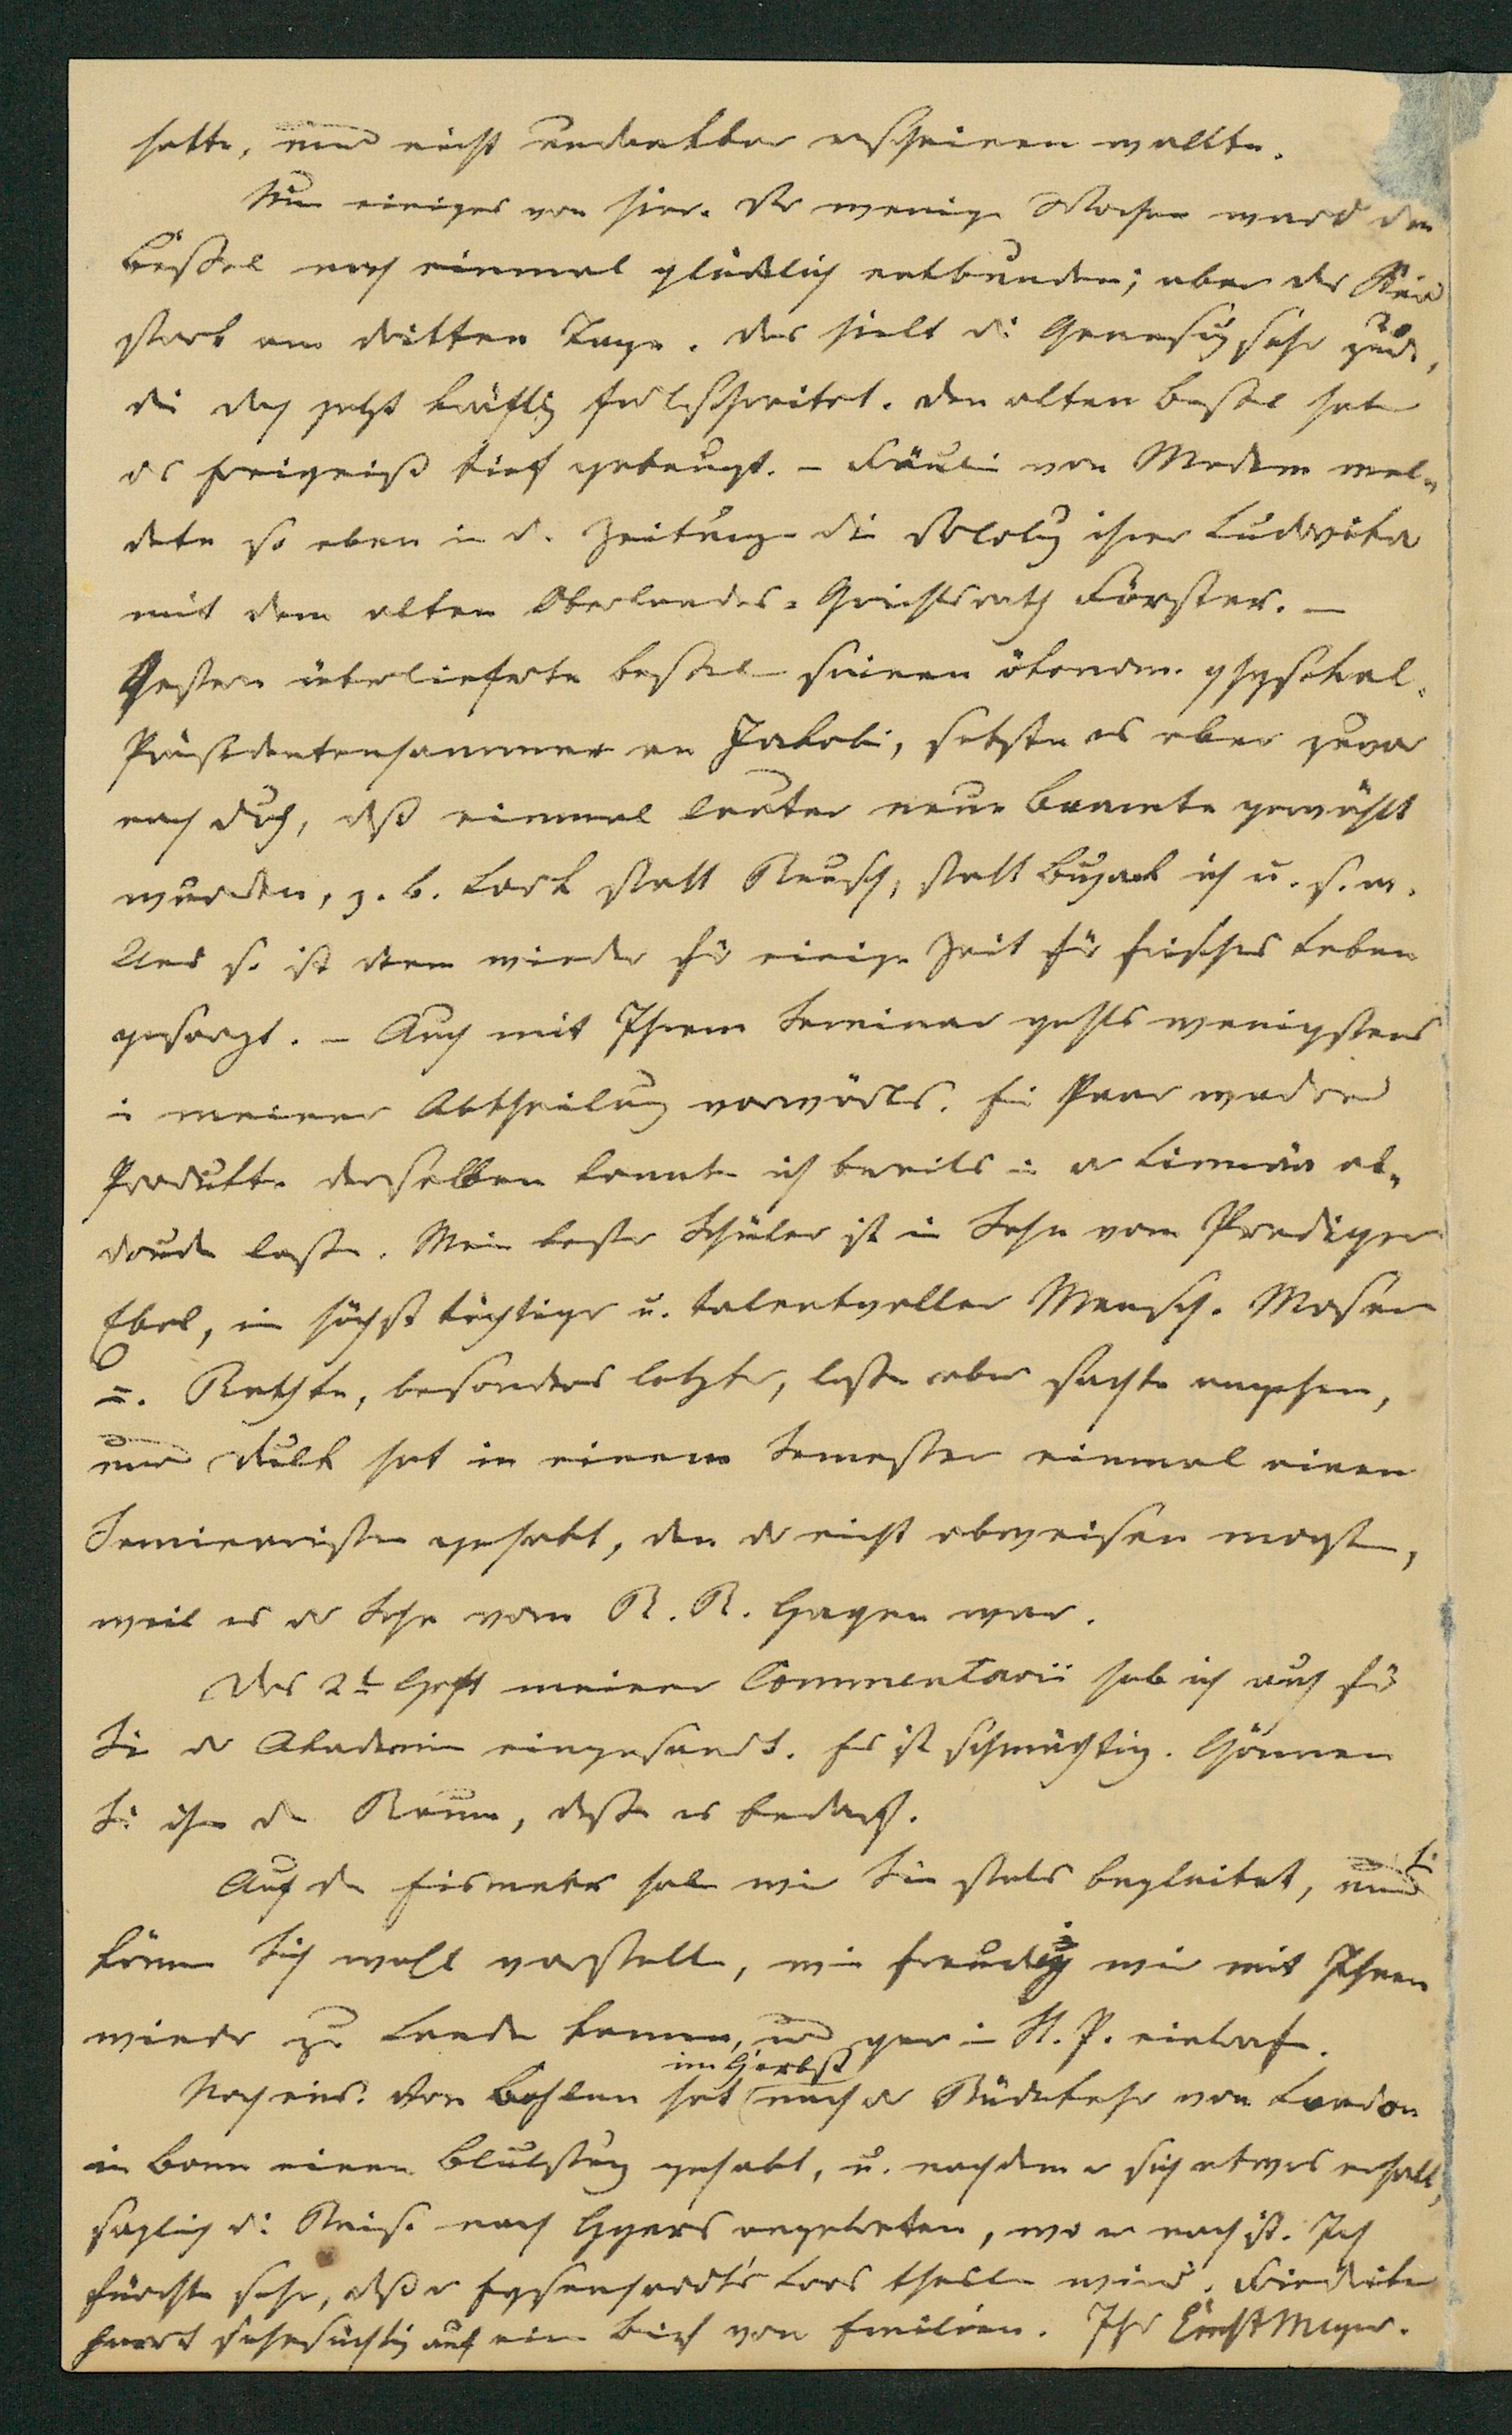 hatte, und nicht undankbar erscheinen wollte.
Nun einiges von hier. Vor wenige Wochen ward die
Bessel noch einmal glücklich entbunden; aber das Kind
starb am dritten Tage. Das hielt die Genesung sehr zurück,
die doch jetzt kräftig fortschreitet. Den alten Bessel hat
das Ereigniß tief gebeugt. – Fräulein von Medem mel-
dete so eben in d. Zeitung die Verlobung ihrer Ludovika
mit dem alten Oberlandes-Gerichtsrath Förster. –
Gestern überlieferte Bessel seinen ökonom. physikal.
Präsidentenhammer an Jakobi, setzte es aber zuvor
noch durch, daß einmal lauter neue Beamte gewählt
wurden, z. B. Lork statt Reusch, statt Bujack ich u. s. w.
Und so ist denn wieder für einige Zeit für frisches Leben
gesorgt. – Auch mit Ihrem Seminar gehts wenigstens
in meiner Abtheilung vorwärts. Ein Paar wackre
Produkte desselben konnte ich bereits in der Linnäa ab-
drucken lassen. Mein bester Schüler ist ein Sohn vom Prediger
Ebel, ein höchst tüchtiger u. talentvoller Mensch. Moser
u. Rathke, besonders letzter, lassen aber sachte angehen,
und Dulk hat in einem Semester einmal einen
Seminaristen gehabt, den er nicht abweisen mochte,
weil es der Sohn vom R. R. Hagen war.
Das 2t Heft meiner Commentarii hab ich auch für
Sie der Akademie eingesandt. Es ist schmächtig. Gönnen
Sie ihm den Raum, dessen es bedarf.
Auf dem Eismeer haben wir Sie stets begleitet, und Sie
können Sich wohl vorstellen, wie freudig wir mit Ihnen
wieder zu Lande kamen, und gar in St. P. eintrafen.
Noch eins. Von Bohlen hat im Herbst nach der Rückkehr von London
in Bonn einen Blutsturz gehabt, u. nachdem er sich etwas erholt,
sogleich die Reise nach Hyères angetreten, wo er noch ist. Ich
fürchte sehr, daß er Eysenhardt's Loos theilen wird. Friederike
harrt sehnsüchtig auf einen Brief von Emilien. Ihr Ernst Meyer.